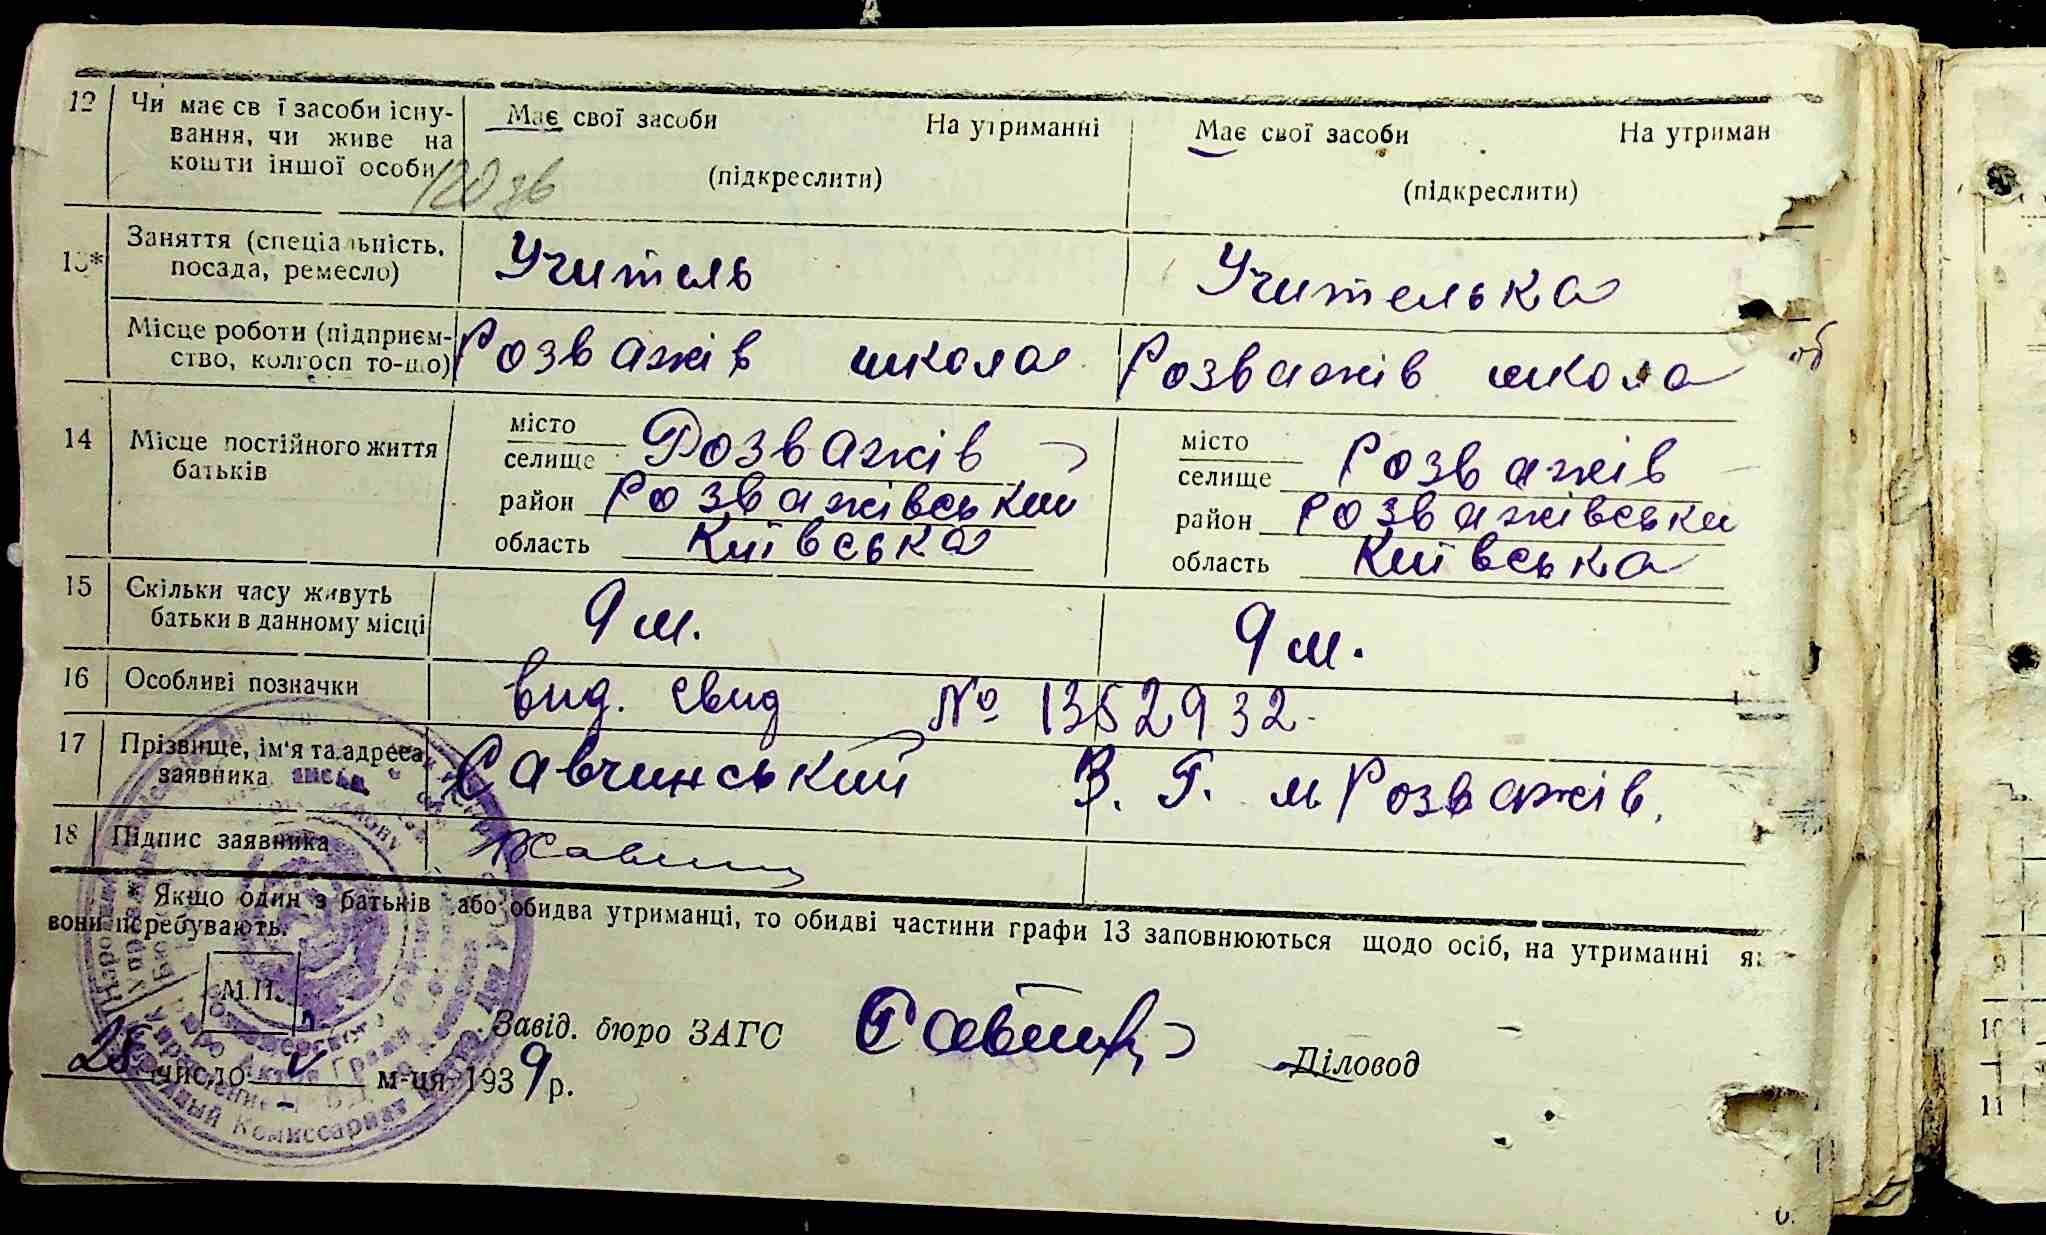 12 Чи має св ї засоби існу- Має свої засоби На утриманні Має свої засоби На утриман
вання, чи живе на
кошти іншої особи (підкреслити) (підкреслити)
120 зв
13* Заняття (спеціальність, Учитель Учителька
посада, ремесло)
Місце роботи (підприєм- Розважів школа Розважів школа
ство, колгосп то-що)
14 Місце постійного життя місто Розважів місто Розважів
батьків селище селище
район Розважівський район Розважівськи
область Київська область Київська
15 Скільки часу живуть 9 м. 9 м.
батьки в данному місці
16 Особливі позначки вид. свид № 1352932
17 Прізвище, ім'я та адреса Савчинський В. Г. м Розважів.
заявника
18 Підпис заявника
Якщо один з батьків або обидва утриманці, то обидві частини графи 13 заповнюються щодо осіб, на утриманні я
вони перебувають.
М.П.
Завід. бюро ЗАГС Діловод
28 число V м-ця 1939 р.
об
9
10
11